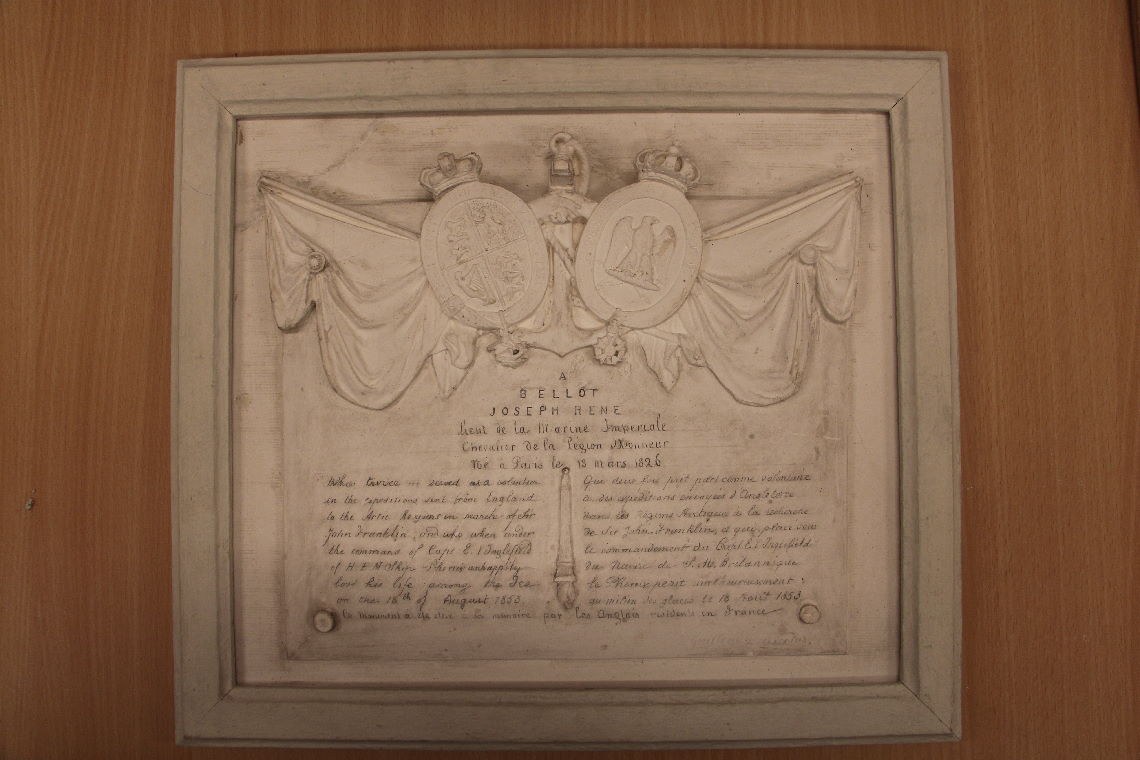 A
BELLOT
JOSEPH RENE
Lieut de la Marine Imperiale
Chevalier de la Légion d'Honneur
Né à Paris le 18 mars 1826
Who twice served as a volunteer
in the expeditions sent from England
to the Artic Regions in search of Sir
John Franklin, and who when under
the command of Capt E. Inglefield
of H B M Ship Phenix unhappily
lost his life among the Ice
on the 18th of August 1853
Que deux fois prit part comme volontaire
a des expéditions envoyées d'Angleterre
dans les régions Arctiques de la recherche
de Sir John Franklin, et qui, placé sous
le commandement du Capt E. Inglefield
du Navire de S. M. Britannique
le Phenix perit malheureusement
au milieu des glaces le 18 Août 1853
Ce monument a été élevé à la mémoire par les Anglais résidents en France